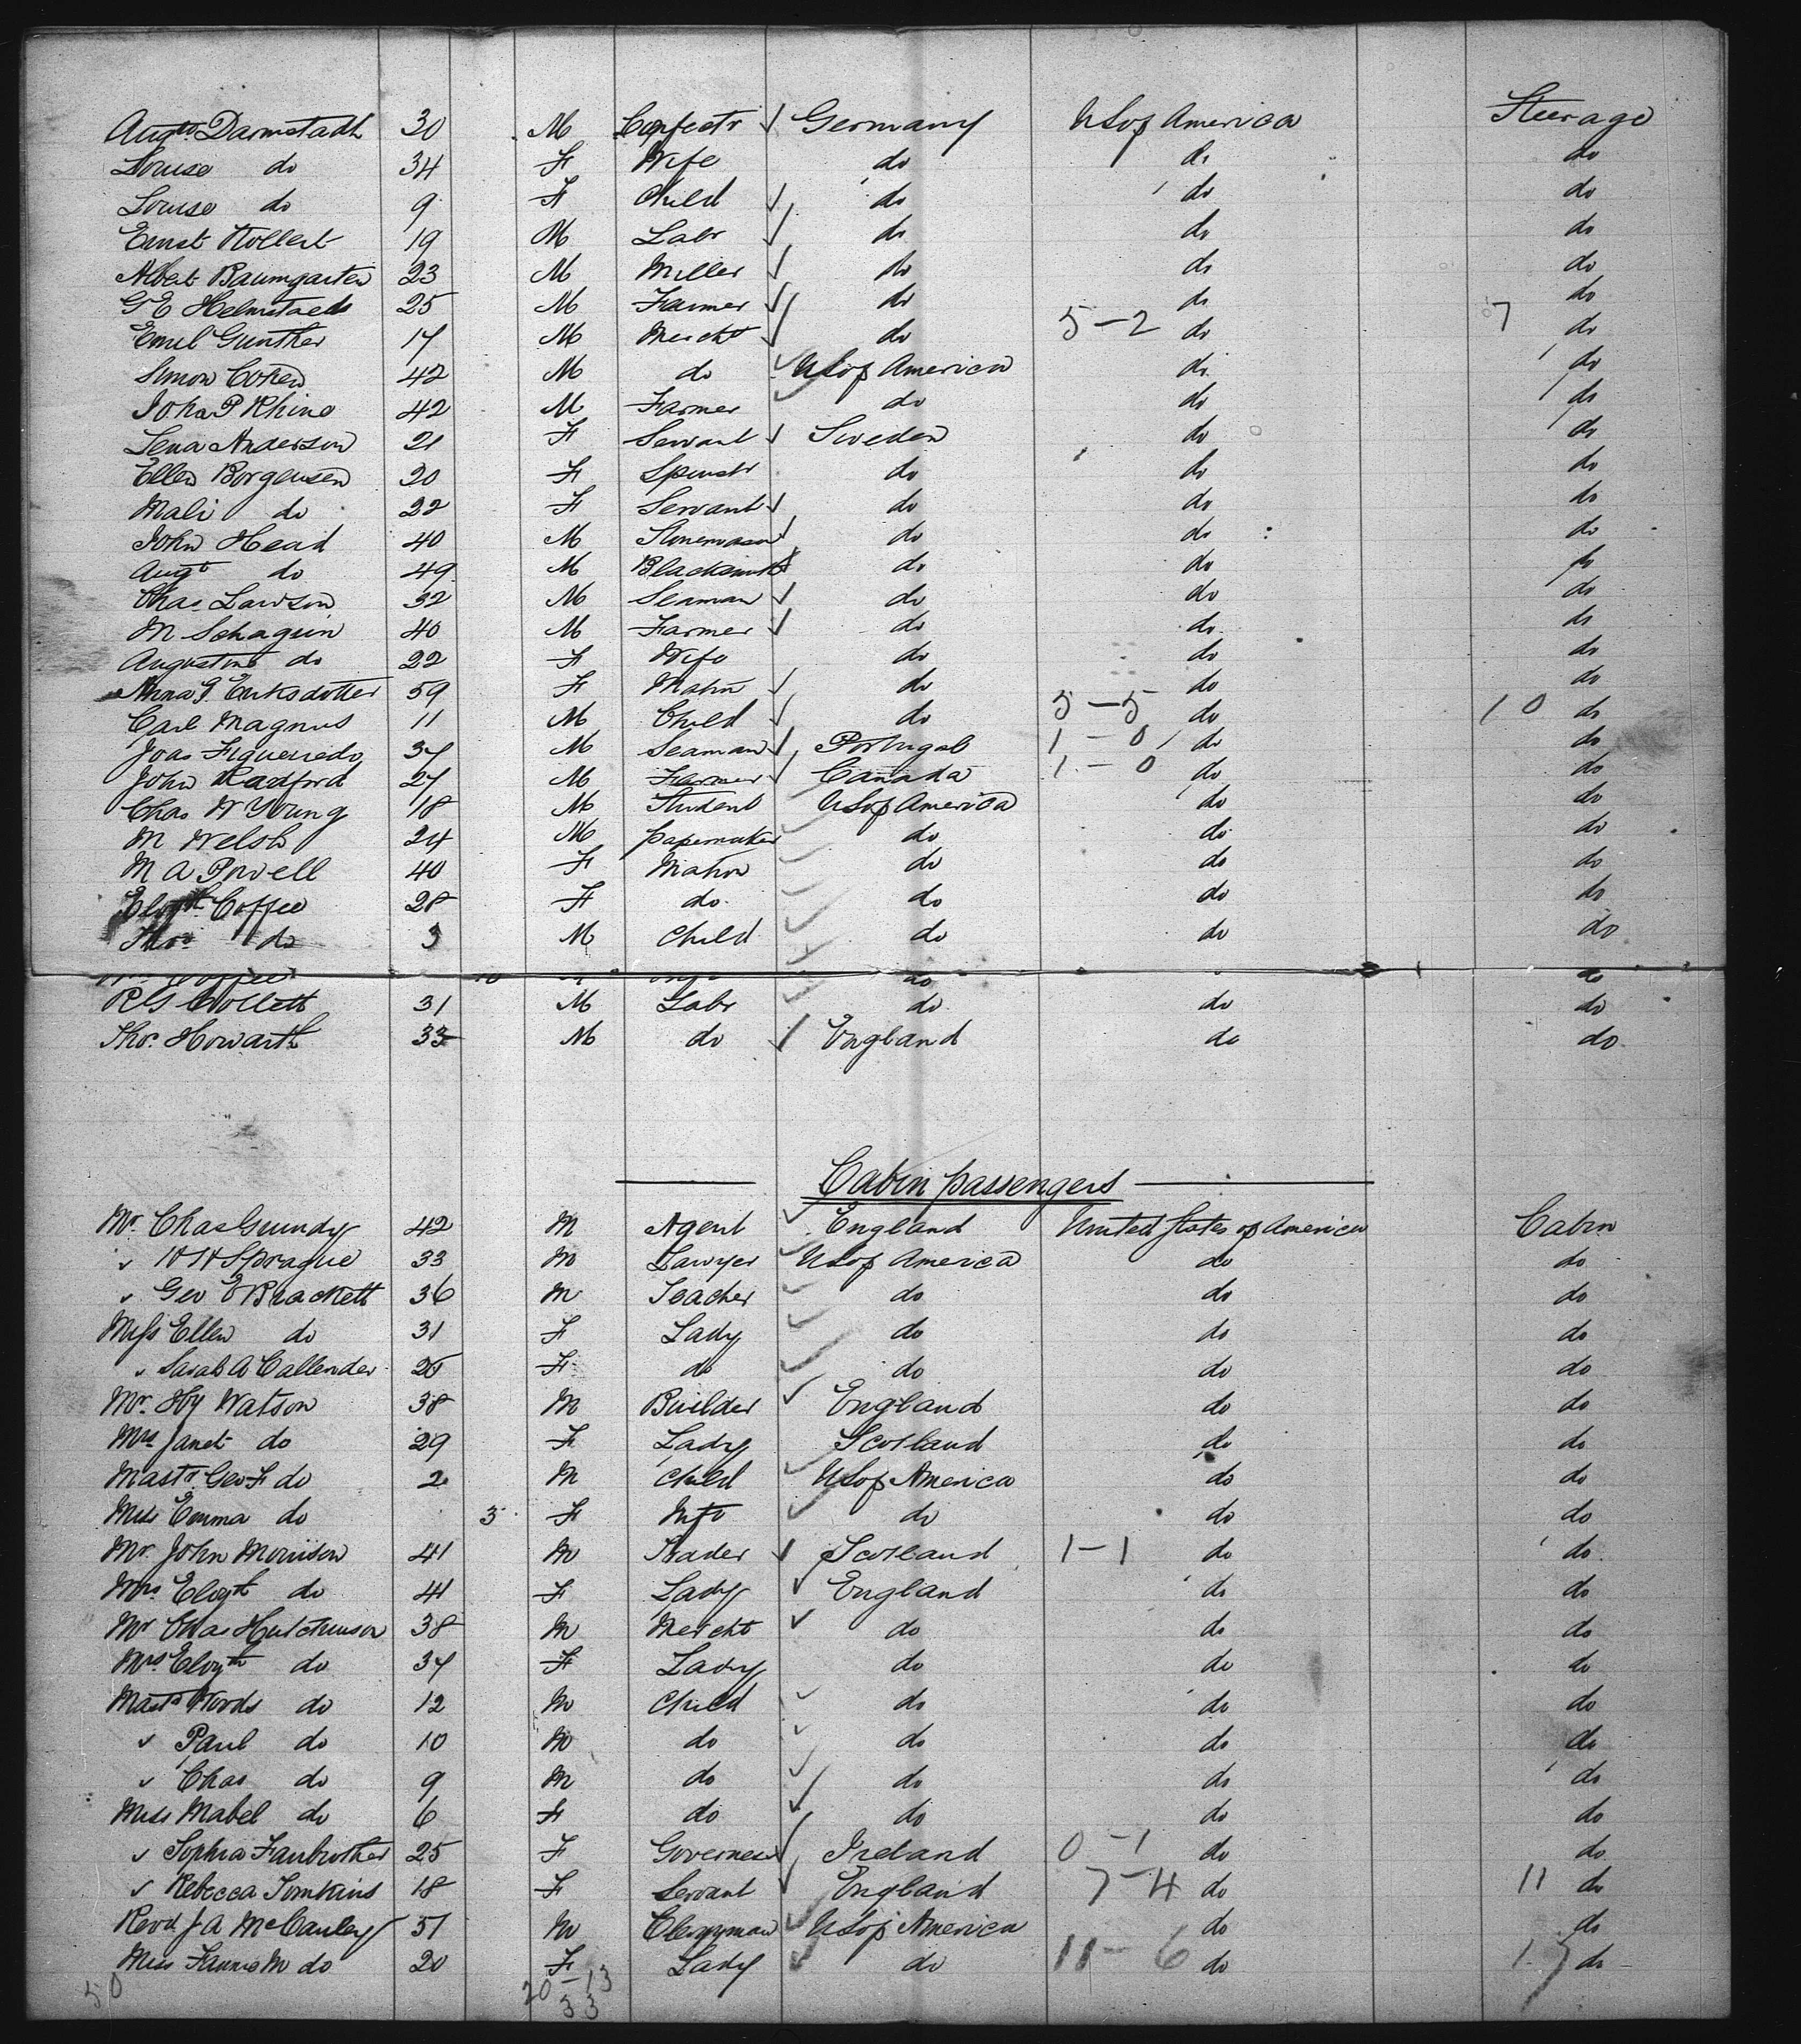 Augto Darmstadt 30 M Confectr Germany US of America Steerage
Louise do 34 F Wife do do do
Louise do 9 F Child do do do
Ernst Kollert 19 M Labr do do do
Albert Baumgarten 23 M Miller do do do
G E Helmstaedt 25 M Farmer do do do
Emil Gunther 17 M Mercht do 5-2 do 7 do
Simon Cohen 42 M do US of America do do
John P Rhino 42 M Farmer do do do
Lena Anderson 21 F Servant Sweden do do
Ellen Borgensen 20 F Spinstr do do do
Mali do 22 F Servant do do do
John Head 40 M Stonemason do do do
Augt do 49 M Blacksmith do do do
Chas Lawson 32 M Seaman do do do
M Schaguin 40 M Farmer do do do
Augustine do 22 F Wife do do do
Anna G. Eriksdotter 59 F Matrn do do do
Carl Magnus 11 M Child do 5-5 do 10 do
Joas Figueriedo 37 M Seaman Portugal 1-0 do do
John Radford 27 M Farmer Canada 1-0 do do
Chas W Young 18 M Student US of America do do
M Welsh 24 M papermaker do do do
M A Powell 40 F Matron do do do
Elizth Coffee 28 F do do do do
Thos do 3 M Child do do do
Coffee 10 do do
R G Collett 31 M Labr do do do
Thos Howarth 33 M do England do do
Cabin passengers
Mr Chas Grundy 42 M Agent England United States of America Cabin
" H H Sprague 33 M Lawyer US of America do do
" Geo E Brackett 36 M Teacher do do do
Miss Ellen do 31 F Lady do do do
" Sarah A Callender 25 F do do do do
Mr Hy Watson 38 M Builder England do do
Mrs Janet do 29 F Lady Scotland do do
Mastr Geo F do 2 M Child US of America do do
Miss Emma do 3 F Inft do do do
Mr John Morrison 41 M Trader Scotland 1-1 do do
Mrs Elizth do 41 F Lady England do do
Mr Chas Hutchinson 38 M Mercht do do do
Mrs Elizth do 37 F Lady do do do
Mastr Woods do 12 M Child do do do
" Paul do 10 M do do do do
" Chas do 9 M do do do do
Miss Mabel do 6 F do do do do
" Sophia Fairbrother 25 F Governess Ireland 0-1 do do
" Rebecca Tomkins 18 F Servant England 7-4 do 11 do
Revd J A McCauley 51 M Clergyman US of America do do
Miss Fannie M do 20 F Lady do 11-6 do 17 do
50 20-13
33